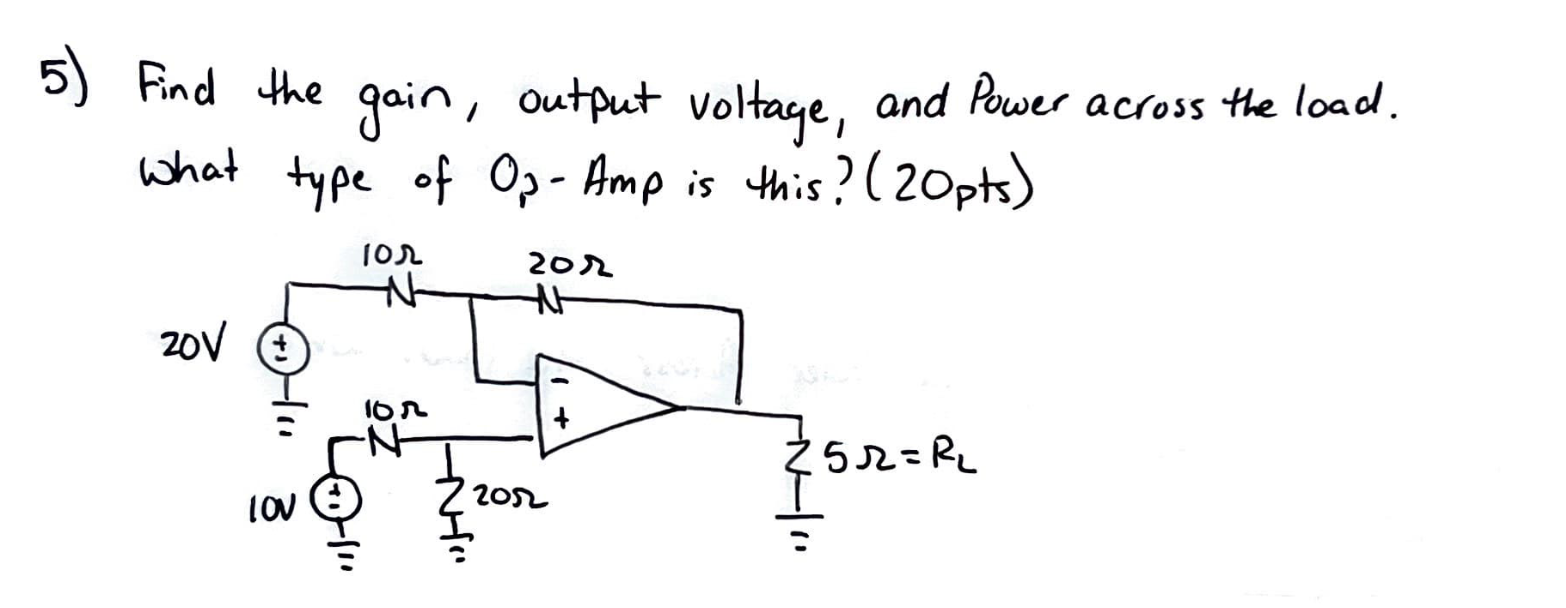 5) Find the gain, output voltage, and Power across the load.
What type of Op-Amp is this? (20pts)
10Ω
20Ω
20V
+
-
-
+
10Ω
5Ω = RL
10V
+
-
20Ω